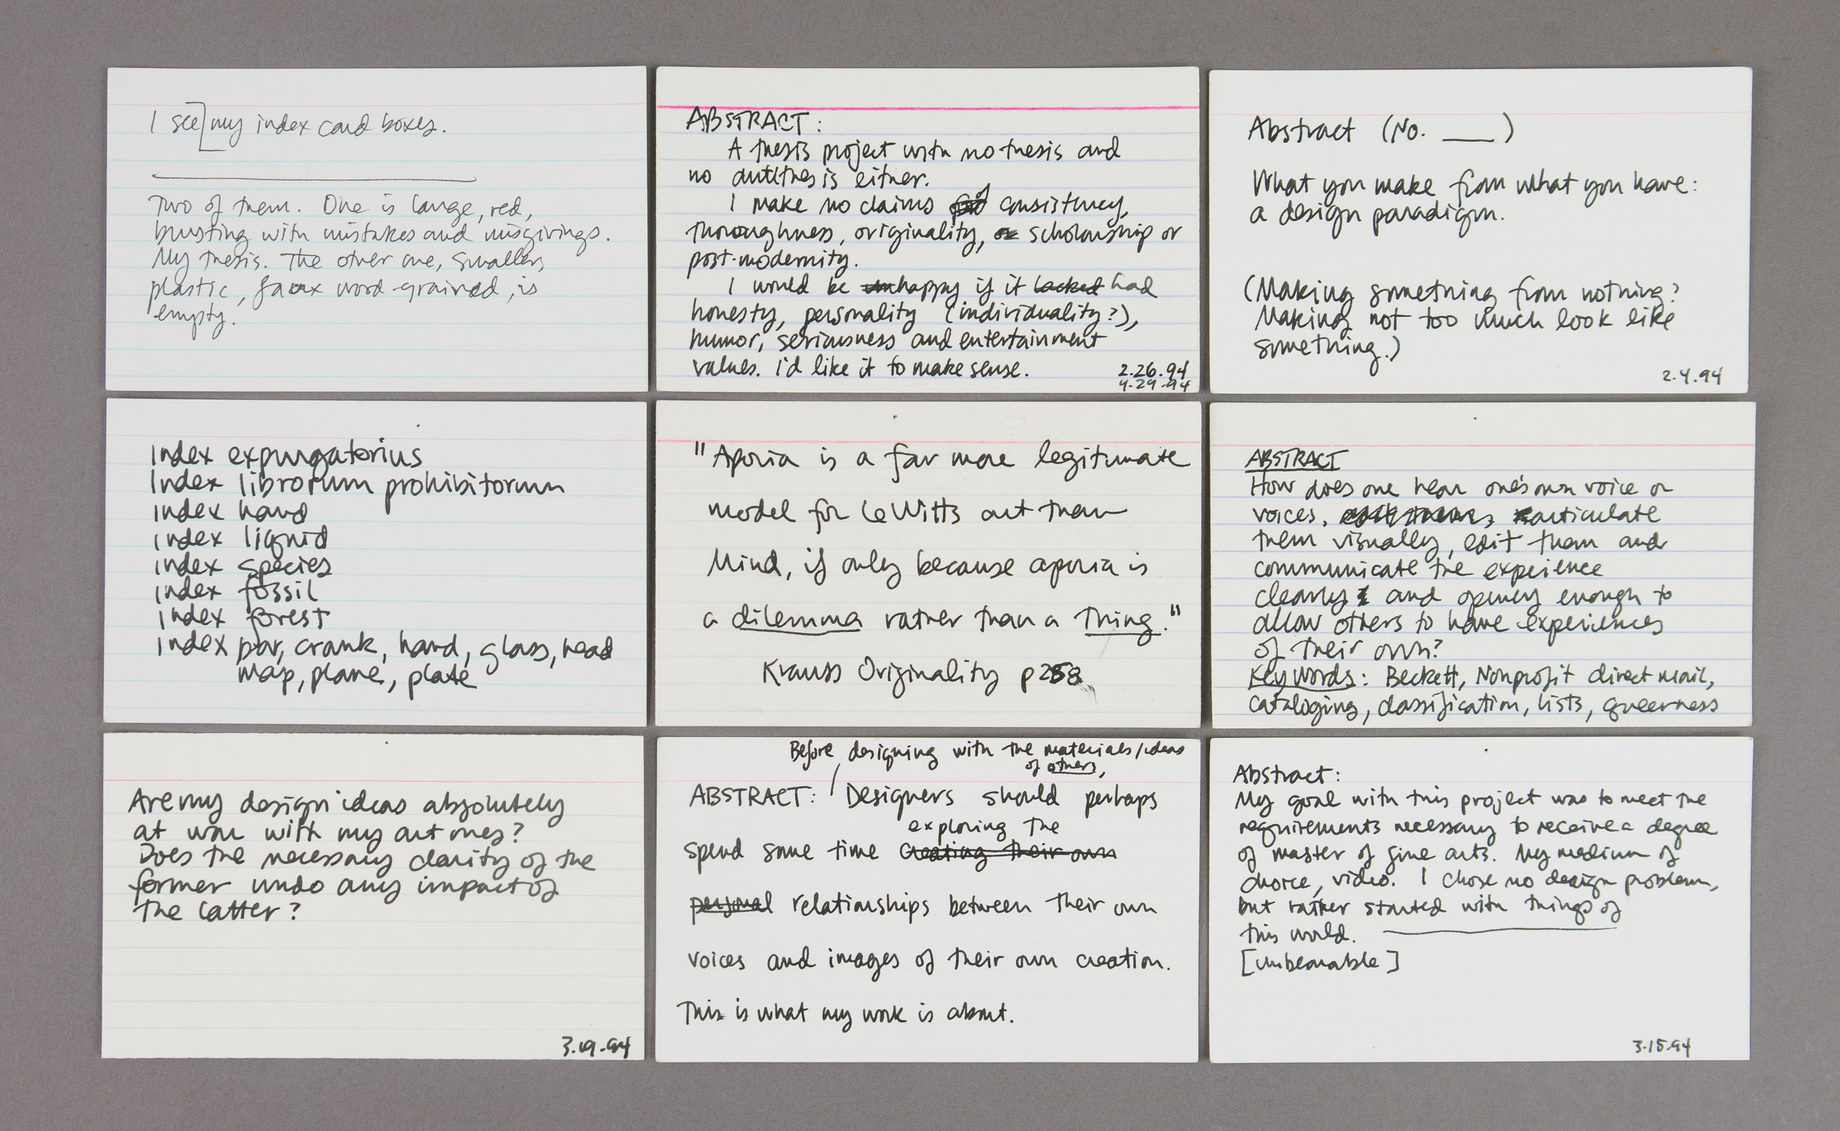 I see] my index card boxes.
Two of them. One is large, red,
bursting with mistakes and misgivings.
My thesis. The other one, smaller,
plastic, faux wood-grained, is
empty.
ABSTRACT:
A thesis project with no thesis and
no antithesis either.
I make no claims of consistency,
thoroughness, originality, or scholarship or
post-modernity.
I would be unhappy if it lacked had
honesty, personality (individuality?),
humor, seriousness and entertainment
values. i'd like it to make sense.
2.26.94
4.29.94
Abstract (No. ___)
What you make from what you have:
a design paradigm.
(Making something from nothing?
Making not too much look like
something.)
2.4.94
Index expurgatorius
Index librorum prohibitorum
Index hand
Index liquid
Index species
Index fossil
Index forest
Index bar, crank, hand, glass, head
map, plane, plate
"Aporia is a far more legitimate
model for LeWitts art than
Mind, if only because aporia is
a dilemma rather than a thing."
Krauss Originality p258
ABSTRACT
How does one hear one's own voice or
voices, articulate
them visually, edit them and
communicate the experience
clearly and openly enough to
allow others to have experiences
of their own?
Key Words: Beckett, Nonprofit direct mail,
cataloging, classification, lists, queerness
Are my design ideas absolutely
at war with my art ones?
Does the necessary clarity of the
former undo any impact of
the latter?
3.19.94
Before designing with the materials/ideas
of others,
ABSTRACT: Designers should perhaps
exploring the
spend some time creating their own
personal relationships between their own
voices and images of their own creation.
This is what my work is about.
Abstract:
My goal with this project was to meet the
requirements necessary to receive a degree
of master of fine arts. My medium of
choice, video. I chose no design problem,
but rather started with things of
this world.
[unbearable]
3.15.94